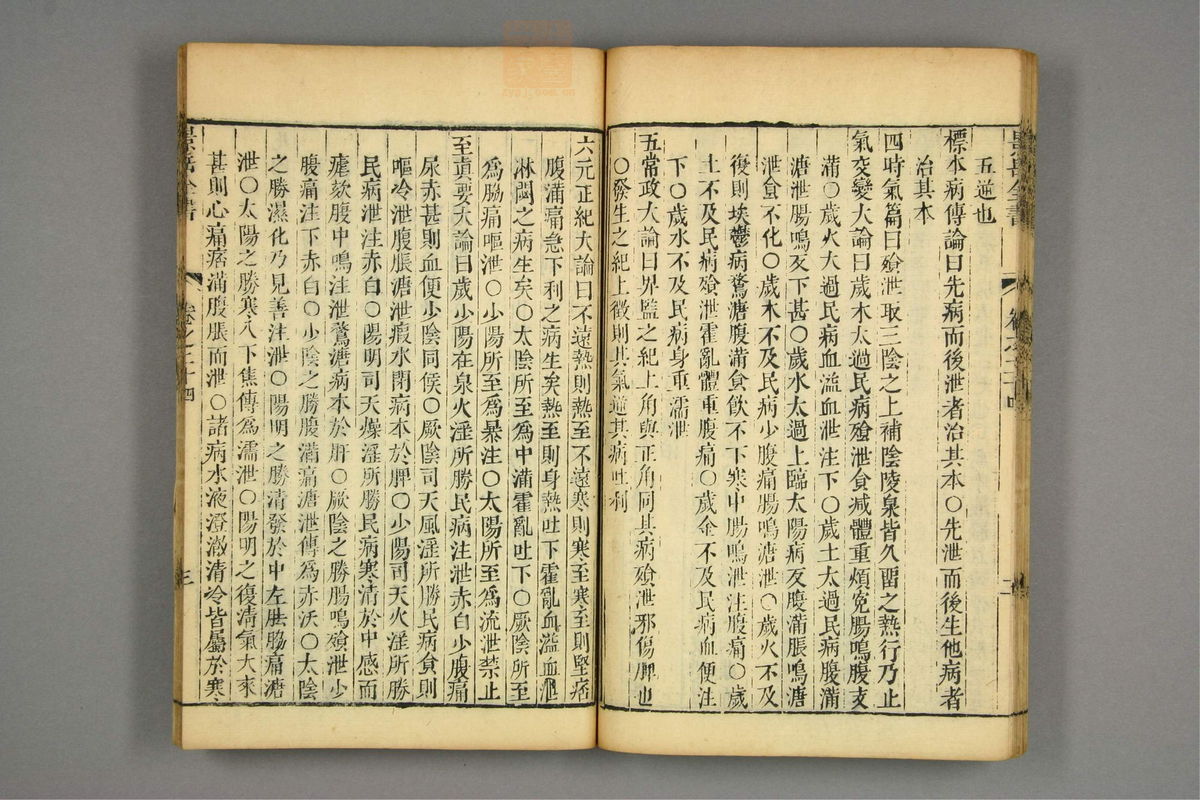 五逆也
標本病傳論曰先病而後泄者治其本○先泄而後生他病者
治其本
四時氣篇曰飱泄取三陰之上補陰陵泉皆久畱之熱行乃止
氣交變大論曰歲木太過民病飱泄食减體重煩寃腸鳴腹支
滿○歲火太過民病血溢血泄注下○歲土太過民病腹滿
溏泄腸鳴反下甚○歲水太過上臨太陽病反腹滿脹鳴溏
泄食不化○歲木不及民病少腹痛腸鳴溏泄○歲火不及
復則埃鬱病鶩溏腹滿食飲不下寒中腸鳴泄注腹痛○歲
土不及民病飱泄霍亂體重腹痛○歲金不及民病血便注
下○歲水不及民病身重濡泄
五常政大論曰畀監之紀上角與正角同其病飱泄邪傷脾也
○發生之紀上徵則其氣逆其病吐利
六元正紀大論曰不遠熱則熱至不遠寒則寒至寒至則堅痞
腹滿痛急下利之病生矣熱至則身熱吐下霍亂血溢血泄
淋閟之病生矣○太陰所至爲中滿霍亂吐下○厥陰所至
爲脇痛嘔泄○少陽所至爲暴注○太陽所至爲流泄禁止
至眞要大論曰歲少陽在泉火淫所勝民病注泄赤白少腹痛
尿赤甚則血便少陰同候○厥陰司天風淫所勝民病食則
嘔冷泄腹脹溏泄瘕水閉病本於脾○少陽司天火淫所勝
民病泄注赤白○陽明司天燥淫所勝民病寒清於中感而
瘧欬腹中鳴注泄鶩溏病本於肝○厥陰之勝腸鳴飱泄少
腹痛注下赤白○少陰之勝腹滿痛溏泄傳爲赤沃○太陰
之勝濕化乃見善注泄○陽明之勝清發於中左胠脇痛溏
泄○太陽之勝寒入下焦傳爲濡泄○陽明之復淸氣大來
甚則心痛痞滿腹脹而泄○諸病水液澄澈清冷皆屬於寒
景岳全書
卷之二十四
三